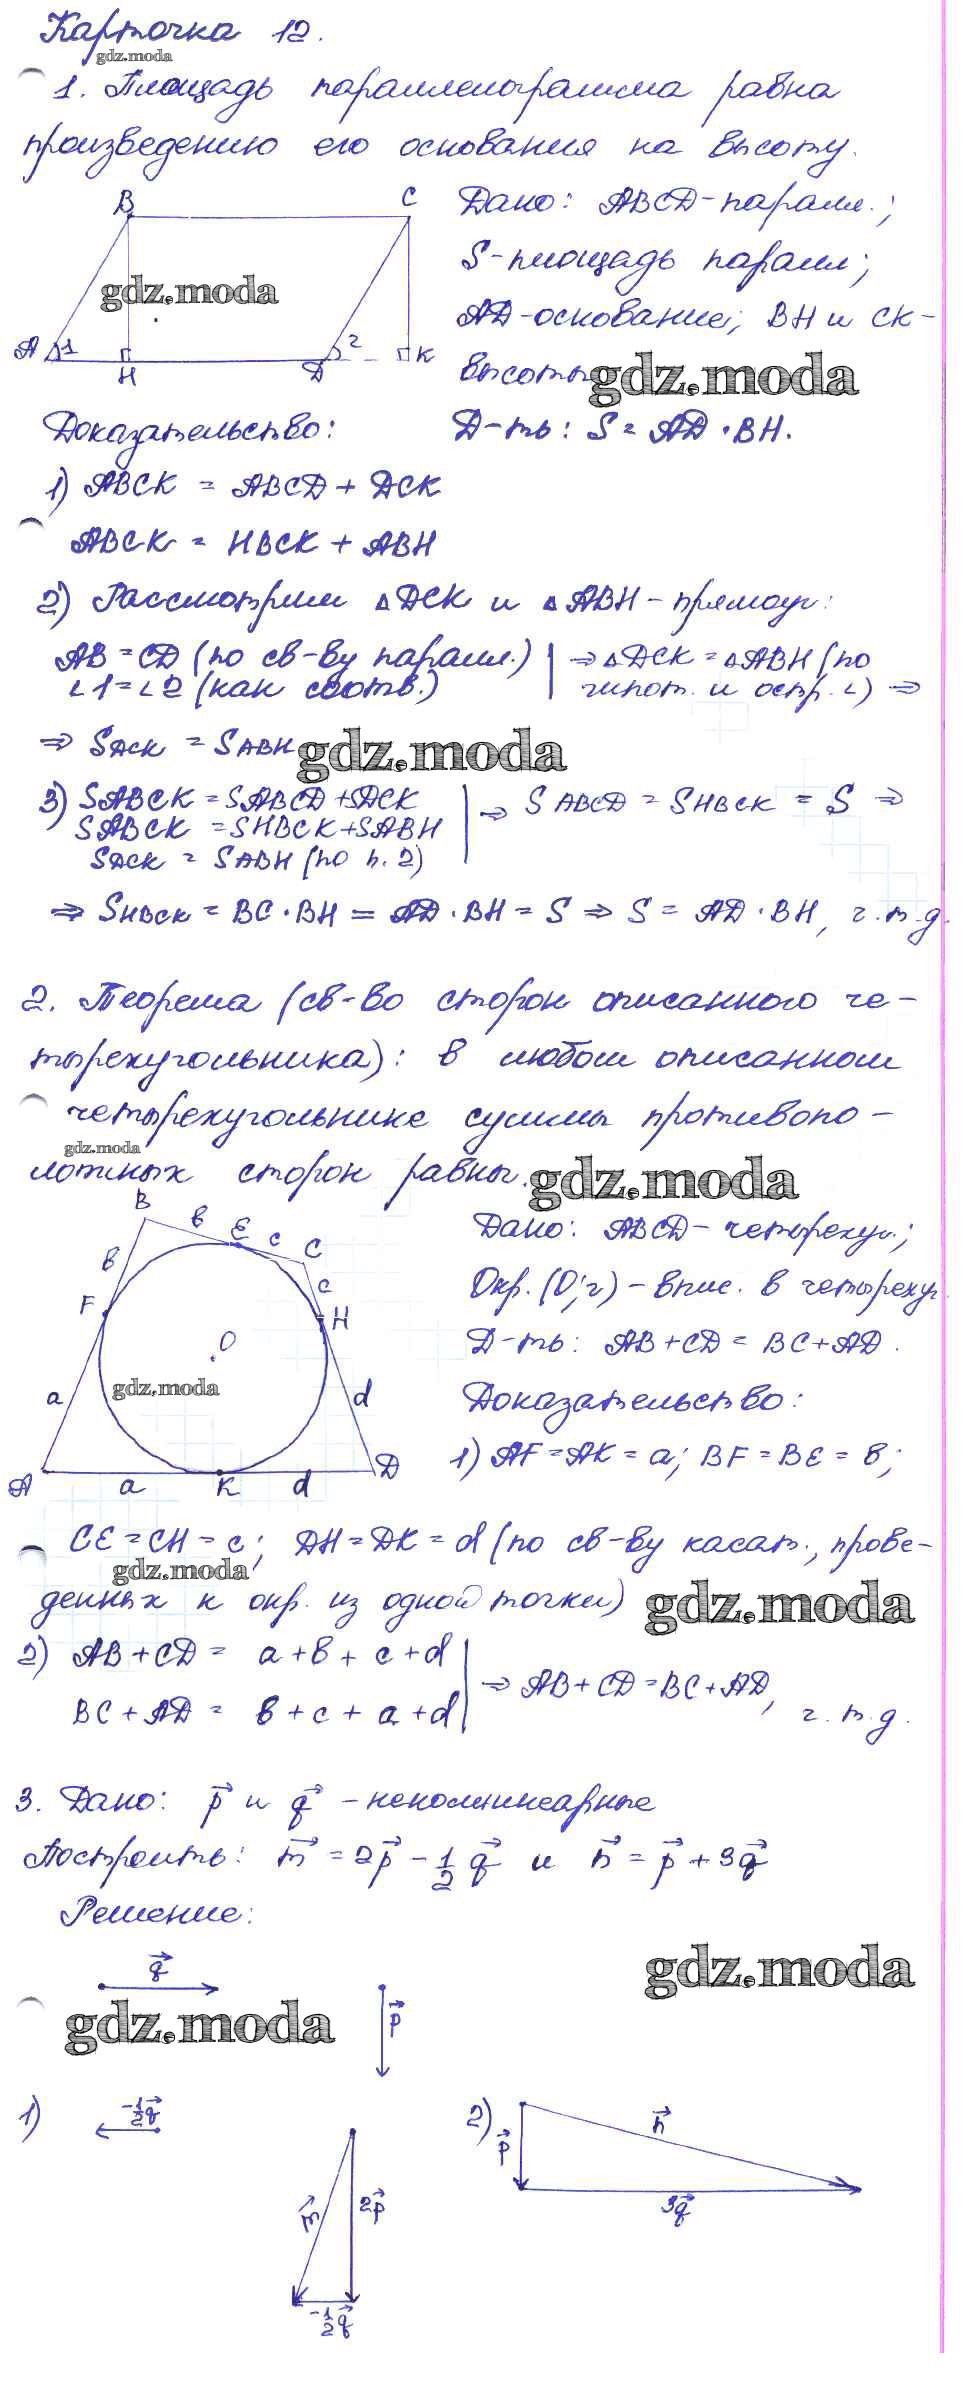 Карточка 12.
gdz.moda
1. Площадь параллелограмма равна
произведению его основания на высоту.
B
C
A
1
H
D
2
K
gdz.moda
Дано: ABCD-паралл.;
S-площадь паралл;
AD-основание; BH и CK-
высоты
gdz.moda
Доказательство:
Д-ть: S = AD · BH.
1) ABCK = ABCD + DCK
ABCK = HBCK + ABH
2) Рассмотрим △DCK и △ABH-прямоуг:
AB = CD (по св-ву паралл.) | ⇒ △DCK = △ABH (по
∠1=∠2 (как соотв.) | гипот. и остр. ∠) ⇒
⇒ SDCK = SABH
gdz.moda
3) SABCK = SABCD + SDCK
SABCK = SHBCK + SABH
SDCK = SABH (по п. 2)
⇒ SABCD = SHBCK = S ⇒
⇒ SHBCK = BC · BH = AD · BH = S ⇒ S = AD · BH, ч.т.д.
2. Теорема (св-во сторон описанного че-
тырехугольника): в любом описанном
четырехугольнике суммы противопо-
gdz.moda
ложных сторон равны.
gdz.moda
B
в
E
c
C
в
c
F
H
O
gdz.moda
a
d
A
a
K
d
D
Дано: ABCD-четырехуг.;
Окр.(O;r)-впис. в четырехуг.
Д-ть: AB+CD = BC+AD.
Доказательство:
1) AF=AK=a; BF=BE=в;
CE=CH=c; DH=DK=d (по св-ву касат., прове-
gdz.moda
денных к окр. из одной точки)
gdz.moda
2) AB+CD = a+в+c+d
BC+AD = в+c+a+d
⇒ AB+CD=BC+AD,
ч.т.д.
3. Дано: p⃗ и q⃗ -неколлинеарные
Построить: m⃗ = 2p⃗ - 1/2 q⃗ и n⃗ = p⃗ + 3q⃗
Решение:
q⃗
p⃗
gdz.moda
gdz.moda
1)
-1/2 q⃗
m⃗
2p⃗
-1/2 q⃗
2)
p⃗
n⃗
3q⃗